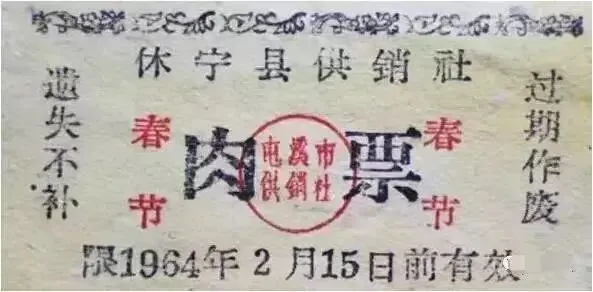 休宁县供销社
遗失不补
春节
肉票
屯溪市
供销社
春节
过期作废
限1964年2月15日前有效